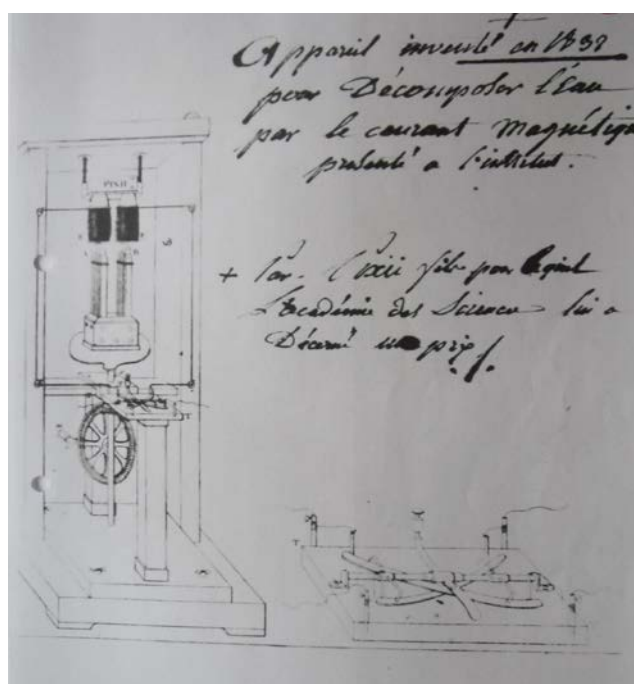 Appareil inventé en 1832
pour Décomposer l'Eau
par le courant Magnétiqu
présenté a l'institut.
+ Par Pixii fils pour lequel
L'académie des Sciences lui a
Décerné un prix !
PIXII